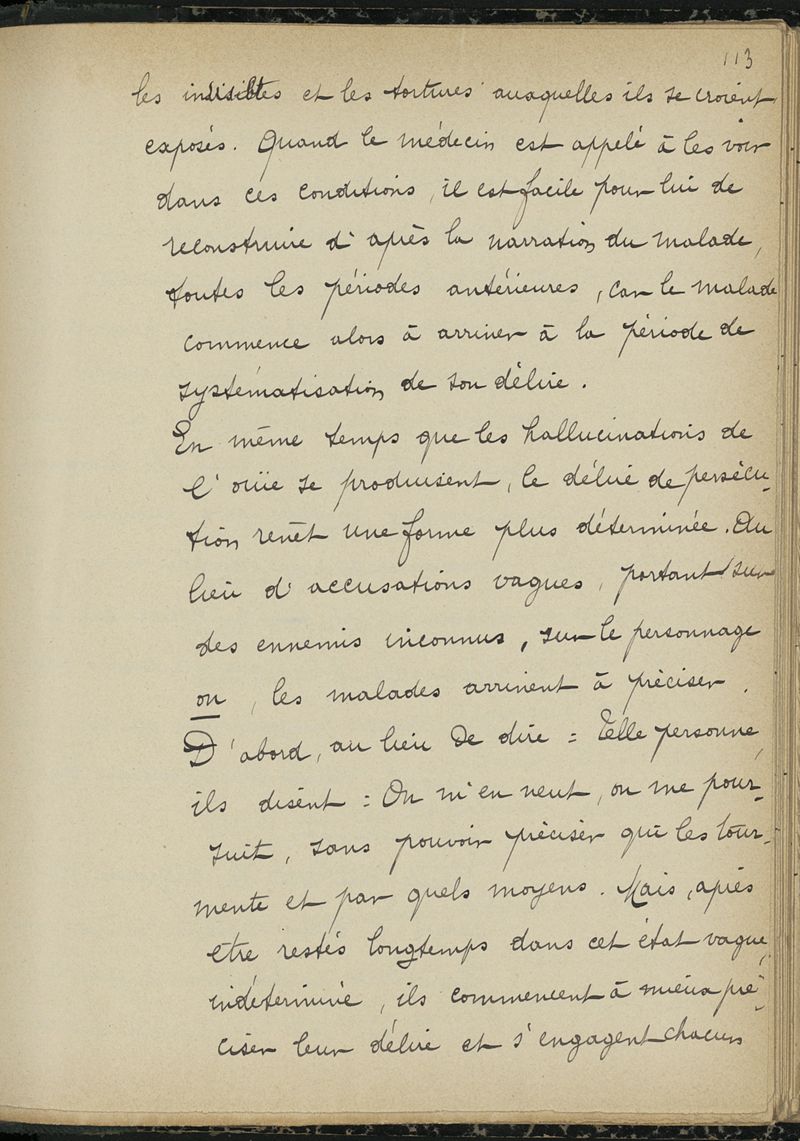 113
les invisibles et les tortures auxquelles ils se croient
exposés. Quand le médecin est appelé à les voir
dans ces conditions, il est facile pour lui de
reconstruire d'après la narration du malade,
toutes les périodes antérieures, car le malade
commence alors à arriver à la période de
systématisation de son délire.
En même temps que les hallucinations de
l'ouïe se produisent, le délire de persécu-
tion revêt une forme plus déterminée. Au
lieu d'accusations vagues, portant sur
des ennemis inconnus, sur le personnage
on, les malades arrivent à préciser.
D'abord, au lieu de dire : Telle personne,
ils disent : On m'en veut, on me pour-
suit, sans pouvoir préciser qui les tour-
mente et par quels moyens. Mais, après
etre restés longtemps dans cet état vague,
indéterminé, ils commencent à mieux pré-
ciser leur délire et s'engagent chacun